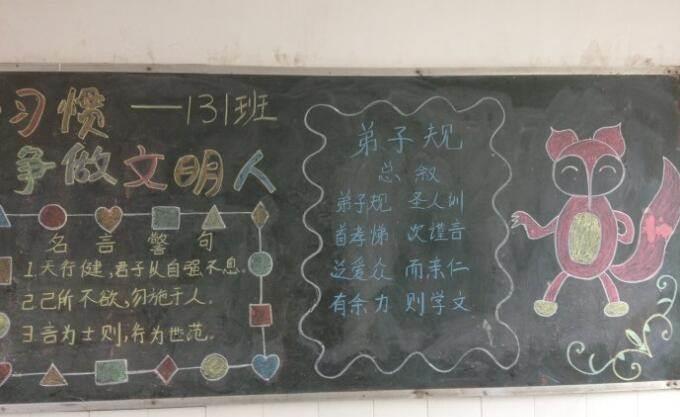 习惯——131班
争做文明人
名言警句
1.天行健,君子以自强不息.
2.己所不欲,勿施于人.
3.言为士则,行为世范.
弟子规
总叙
弟子规 圣人训
首孝悌 次谨言
泛爱众 而亲仁
有余力 则学文